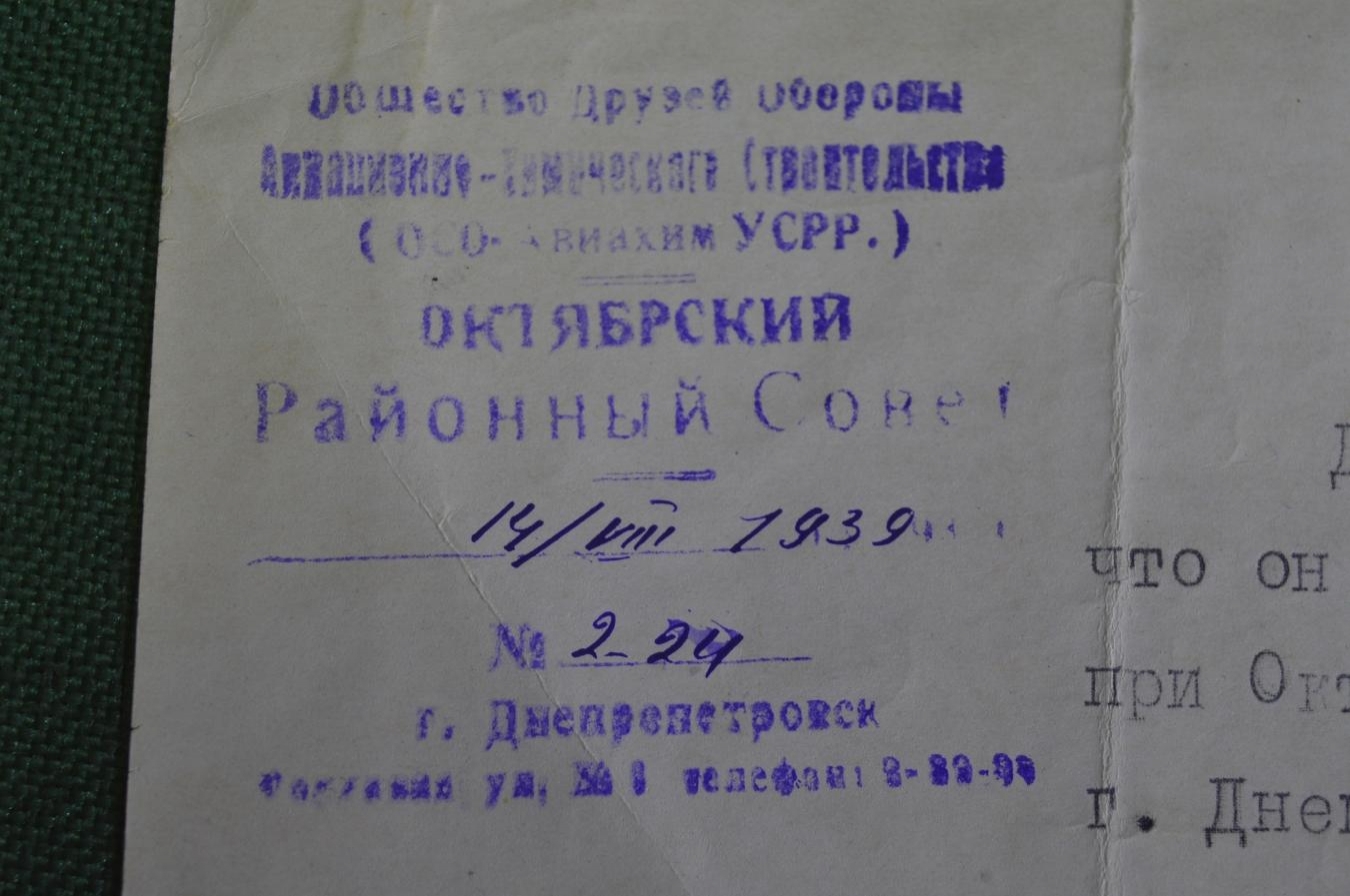 Общество Друзей Обороны
Авиационно-Химического Строительства
(ОСО-Авиахим УСРР.)
ОКТЯБРСКИЙ
Районный Совет
14/VIII 1939
№ 2-24
г. Днепропетровск
ул. № телефон:
что он
при Окт
г. Днеп